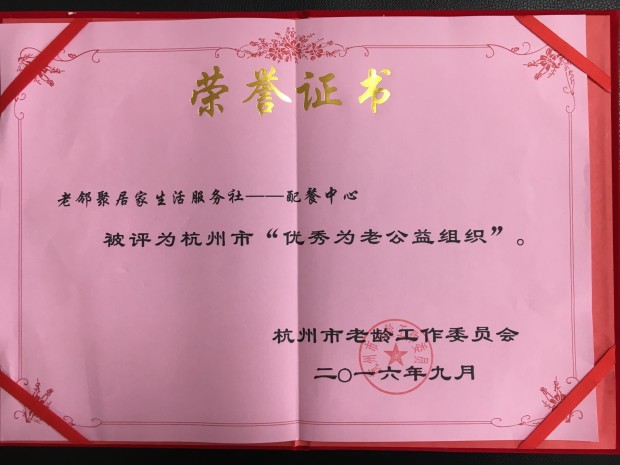 荣誉证书
老邻聚居家生活服务社——配餐中心
被评为杭州市“优秀为老公益组织”。
杭州市老龄工作委员会
二〇一六年九月